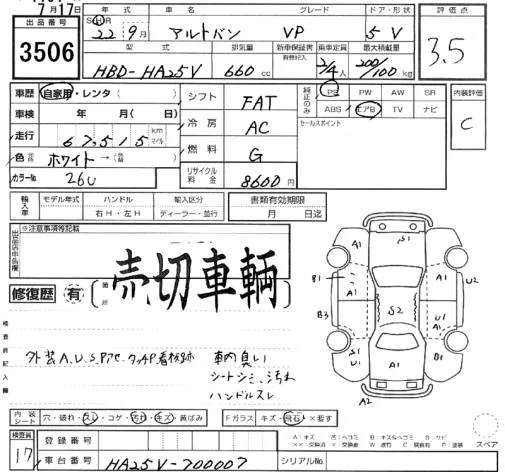 7月17日
出品番号
3506
年式 グレード ドア・形状
SHR
22年9月 アルトバン VP 5V
型式 排気量 新車保証書 乗車定員 最大積載量
有無記入
HBD-HA25V 660cc 2/4人 200/100kg
評価点
3.5
車歴 自家用・レンタ( )
車検 年 月( 日)
走行 67,515 km マイル
色 ホワイト→( )
カラーNo 26U
シフト FAT
冷房 AC
燃料 G
リサイクル料金 8600円
純正のみ
PS PW AW SR
ABS エアB TV ナビ
セールスポイント
内装評価
C
輸入車
モデル年式 ハンドル 輸入区分
右H・左H ディーラー・並行
書類有効期限
月 日迄
※注意事項等記載
修復歴 有 箇所
売切車輌
検査員記入欄
外装A.U.S.Pアセ.タッチP看板跡
車内臭い
シートシミ、汚れ
ハンドルスレ
S1
A1 A1
B1 A1 U2
B3 S2 U1
A1 A1
S1 U1 A1 B1
A2
内装シート 穴・破れ・スレ・コゲ・汚れ・キズ・黄ばみ
Fガラス キズ・飛石・×要す
検査員
17
登録番号
車台番号 HA25V-700007
シリアルNo.
スペア